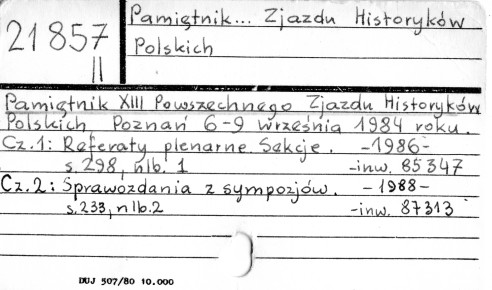 21857
II
Pamiętnik... Zjazdu Historyków
Polskich
Pamiętnik XIII Powszechnego Zjazdu Historyków
Polskich Poznań 6-9 września 1984 roku.
Cz.1: Referaty plenarne. Sekcje. -1986-
s. 298, nlb. 1 -inw. 85347
Cz.2: Sprawozdania z sympozjów. -1988-
s. 233, nlb. 2 -inw. 87313
DUJ 507/80 10.000